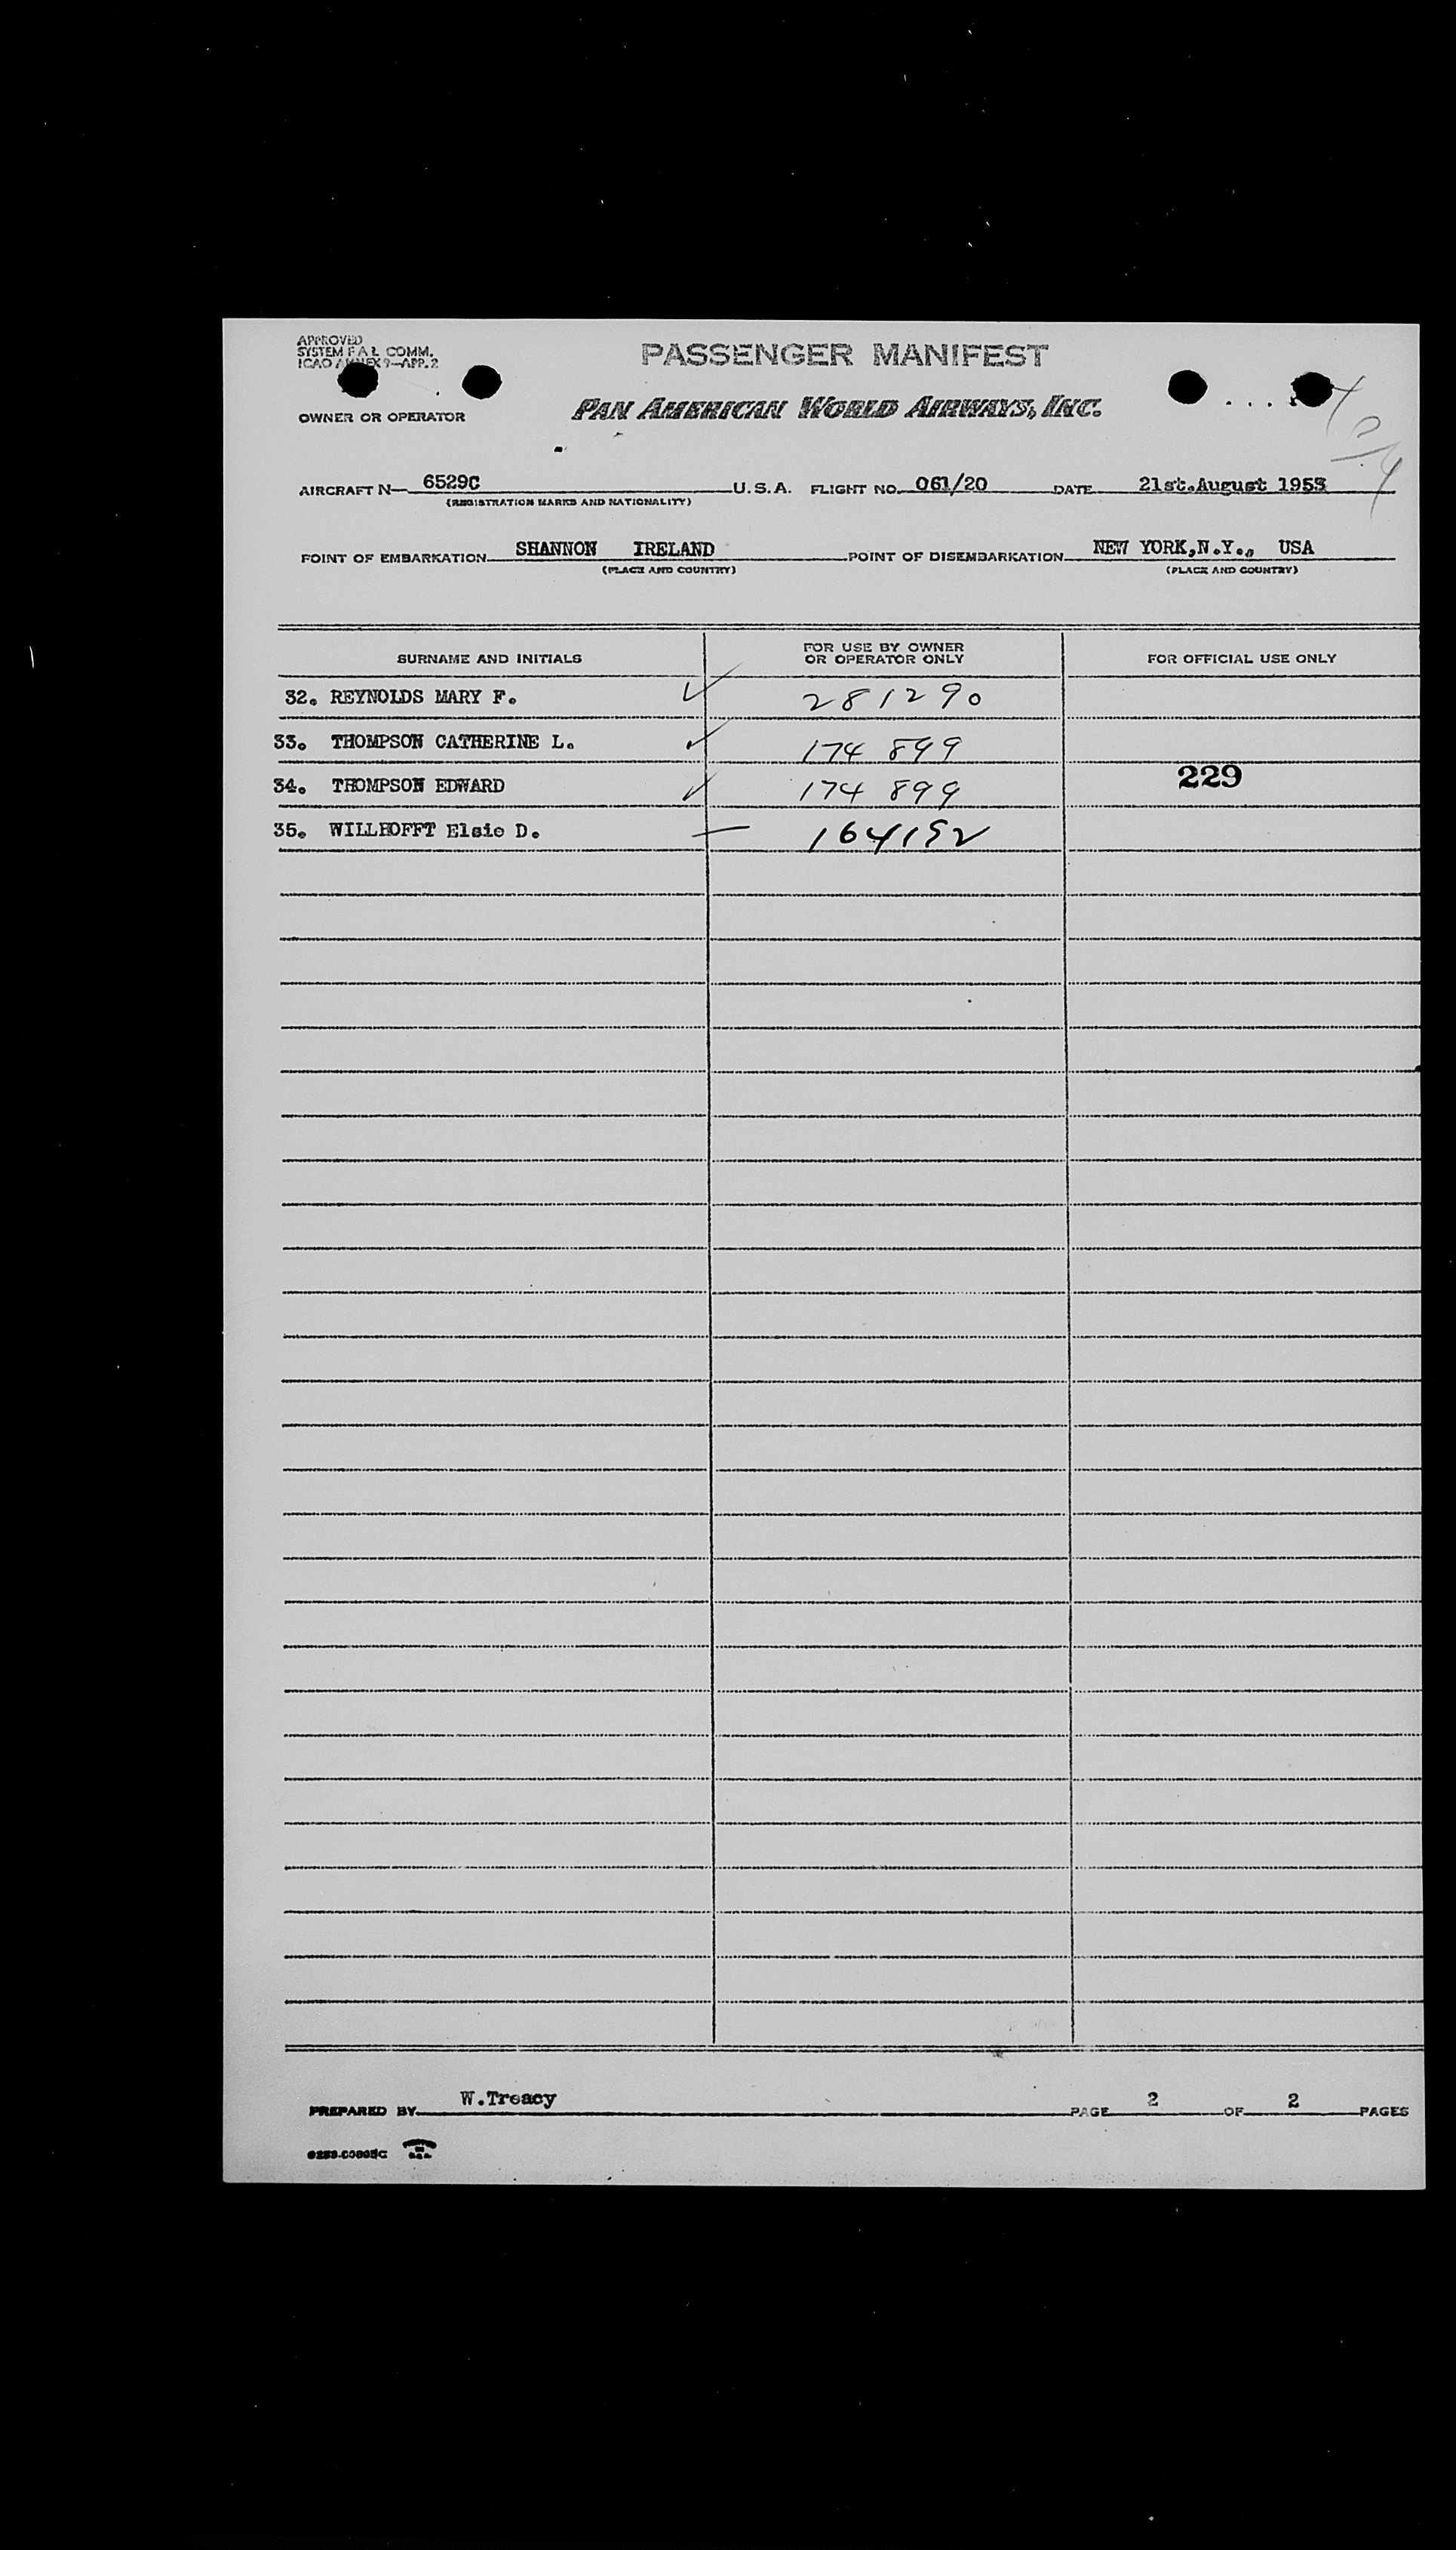 APPROVED
SYSTEM F A L COMM.
ICAO ANNEX 9—APP. 2
PASSENGER MANIFEST
OWNER OR OPERATOR
PAN AMERICAN WORLD AIRWAYS, INC.
AIRCRAFT N— 6529C U.S.A. FLIGHT NO. 061/20 DATE 21st.August 1953
(REGISTRATION MARKS AND NATIONALITY)
POINT OF EMBARKATION SHANNON IRELAND POINT OF DISEMBARKATION NEW YORK,N.Y., USA
(PLACE AND COUNTRY) (PLACE AND COUNTRY)
SURNAME AND INITIALS FOR USE BY OWNER OR OPERATOR ONLY FOR OFFICIAL USE ONLY
32. REYNOLDS MARY F. 281290
33. THOMPSON CATHERINE L. 174 899
229
34. THOMPSON EDWARD 174 899
35. WILLHOFFT Elsie D. 164152
PREPARED BY W.Treacy PAGE 2 OF 2 PAGES